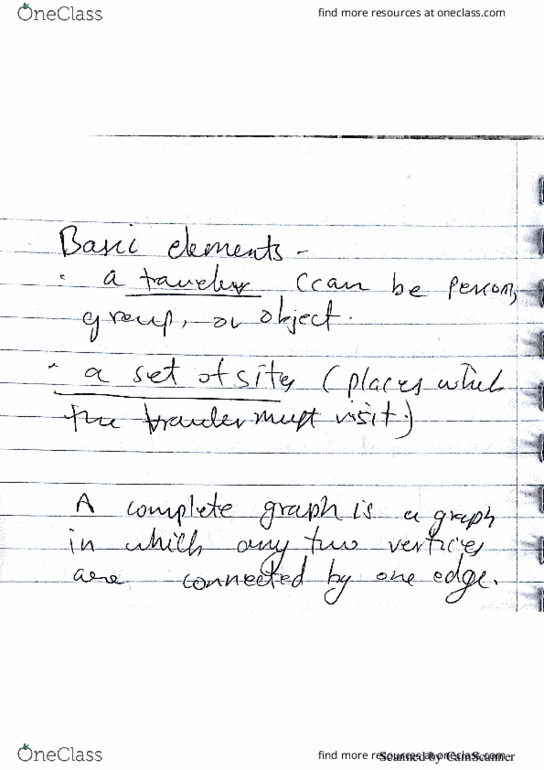 OneClass
find more resources at oneclass.com
Basic elements -
· a traveler (can be person,
group, or object.
· a set of sites (places which
the traveler must visit)
A complete graph is a graph
in which any two vertices
are connected by one edge.
OneClass
find more resources at oneclass.com
Scanned by CamScanner